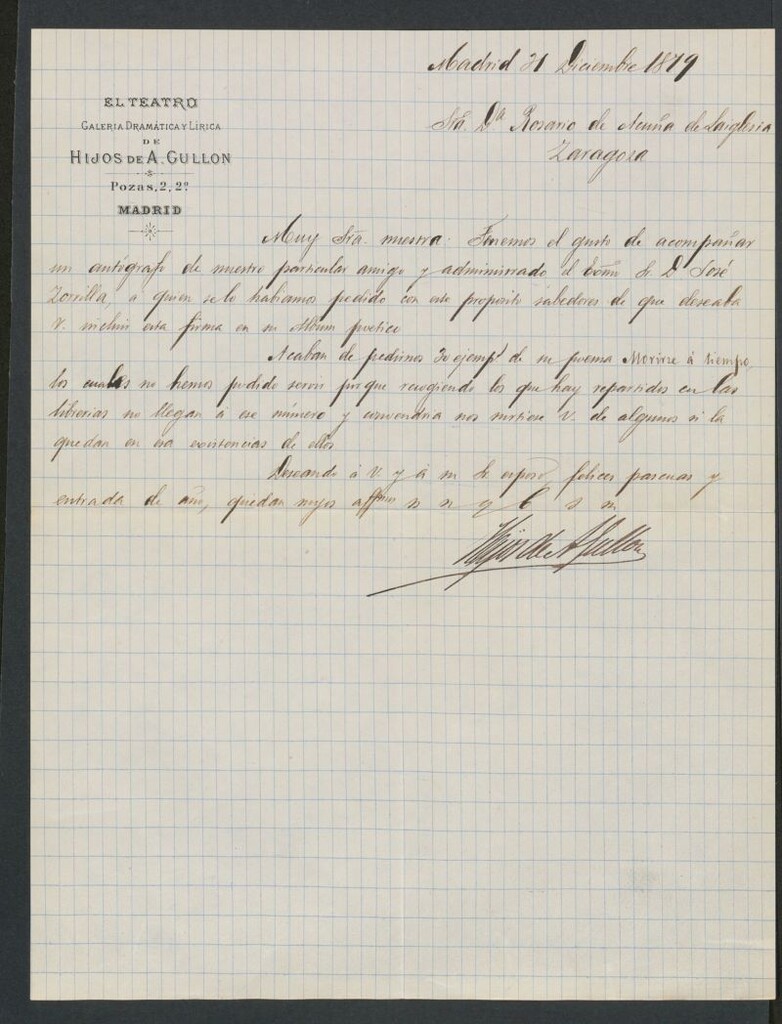 Madrid 21 Diciembre 1879
EL TEATRO
GALERIA DRAMÁTICA Y LÍRICA
DE
HIJOS DE A. GULLON
Pozas, 2, 2º
MADRID
Sra. Dª Rosario de Acuña de Laiglesia
Zaragoza
Muy Sra. nuestra: Tenemos el gusto de acompañar
un autógrafo de nuestro particular amigo y administrado el Exmo Sr. D José
Zorrilla, a quien se lo habiamos pedido con este proposito sabedores de que deseaba
V. incluir esta firma en su Album poetico
Acaban de pedirnos 30 ejempˢ de su poema Morirse á tiempo,
los cuales no hemos podido servir porque recogiendo los que hay repartidos en las
librerias no llegan á ese número y convendria nos surtiese V. de algunos si la
quedan en esa existencias de ellos
Deseando á V y á su Sr esposo, felices pascuas y
entrada de año, quedan suyos affmos s s q b s m
Hijos de A Gullon